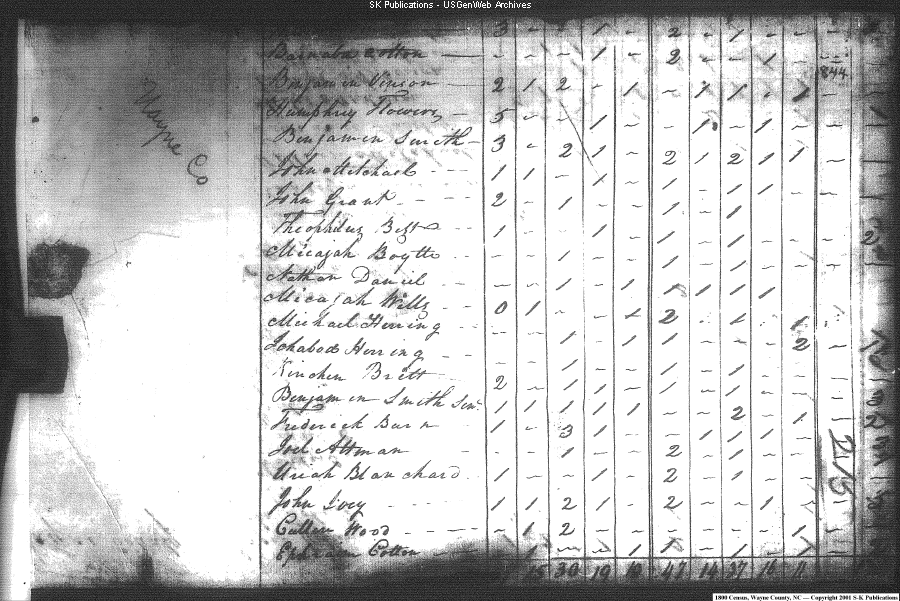 SK Publications - USGenWeb Archives
3 - - 1 - 2 - 1 - -
Barnaba Cotton - - - 1 - 2 - - - -
844
Benjamin Vinson 2 1 2 - 1 - 1 1 - 1
Humphrey Flowers 5 - - 1 - - 1 - 1 -
Benjamin Smith 3 - 2 1 - 2 1 2 1 1
John Mitchael 1 1 - 1 - 1 - 1 1 -
John Grant 2 - 1 - - 1 - 1 - -
Theophilus Betts 1 - - 1 - 1 - 1 - -
Micajah Boytte - - 1 - - 1 - 1 - -
Nathan Daniel - - 1 - 1 1 1 1 1 -
Micajah Wills 0 1 - - 1 2 - 1 - 1
Michael Herring - - 1 - 1 1 - - - 2
Ichabod Herring - - 1 - - 1 - 1 - -
Kinchen Britt 2 - 1 1 - 1 - 1 - -
Benjamin Smith Senr 1 1 1 1 1 - - 2 - 1
Frederick Barn 1 - 3 1 - - 1 1 1 -
Joel Altman - - 1 - - 2 - 1 - -
215
Uriah Blanchard 1 - - 1 - 2 - 1 - -
John Ivey 1 1 2 1 - 2 - - 1 -
Cullen Wood - 1 2 - - - - - - 1
Ephraim Cotton - 1 - - 1 1 - 1 - 1
15 30 19 10 47 14 37 16 11
Wayne Co
1800 Census, Wayne County, NC — Copyright 2001 S-K Publications